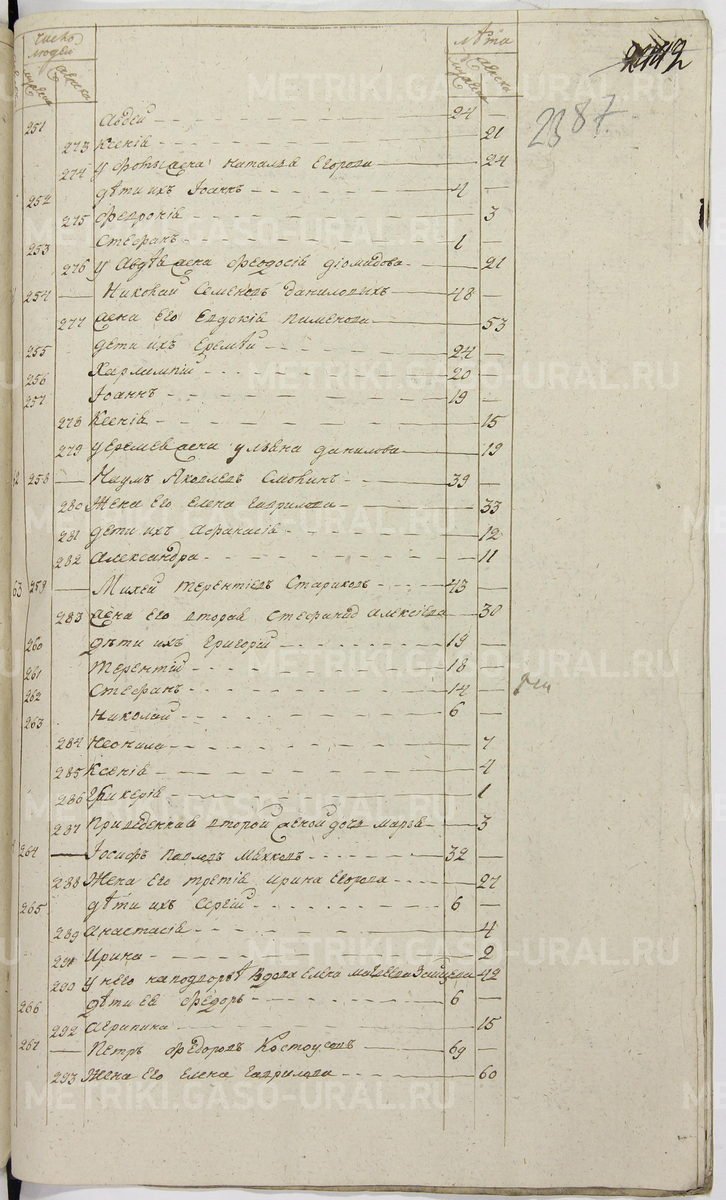 число людей лѣта
мужеска женска мужеска женска
2387
251 Авдей 24
273 Ксенiя 21
274 У Фоки жена Наталья Егорова 24
252 дѣти ихъ Iоаннъ 4
275 Феврония 3
253 Стефанъ 1
276 У Авдѣя жена Феодосiя Дiомидова 21
254 Николай Семеновъ Даниловыхъ 48
277 жена Его Евдокiя Пименова 53
255 дети ихъ Еремѣй 24
256 Харлампiй 20
257 Iоаннъ 19
278 Ксенiя 15
279 У Еремея жена Ульяна Данилова 19
258 Наумъ Яковлевъ 39
280 Жена Его Елена Гаврилова 33
281 дети ихъ Афанасiя 12
282 Александра 11
63 259 Михей Терентiевъ Стариковъ 43
283 жена Его вторая Стефанида Алексiева 30
260 дѣти ихъ Григорiй 19
261 Терентiй 18
262 Стефанъ 14
263 Николай 6
284 Неонила 7
285 Ксенiя 4
286 Гликерiя 1
287 Приведенная второй женой дочь Марья 3
264 Iосифъ Павловъ 32
288 Жена Его третiя Ирина Егорова 27
265 дѣти ихъ Сергiй 6
289 Анастасiя 4
291 Ирина 2
290 У него на подворьѣ вдова Елена 42
266 дѣти Ея Ѳедоръ 6
292 Агрипина 15
267 Петръ Ѳедоровъ Костоусовъ 69
293 Жена Его Елена Гаврилова 60
METRIKI.GASO-URAL.RU